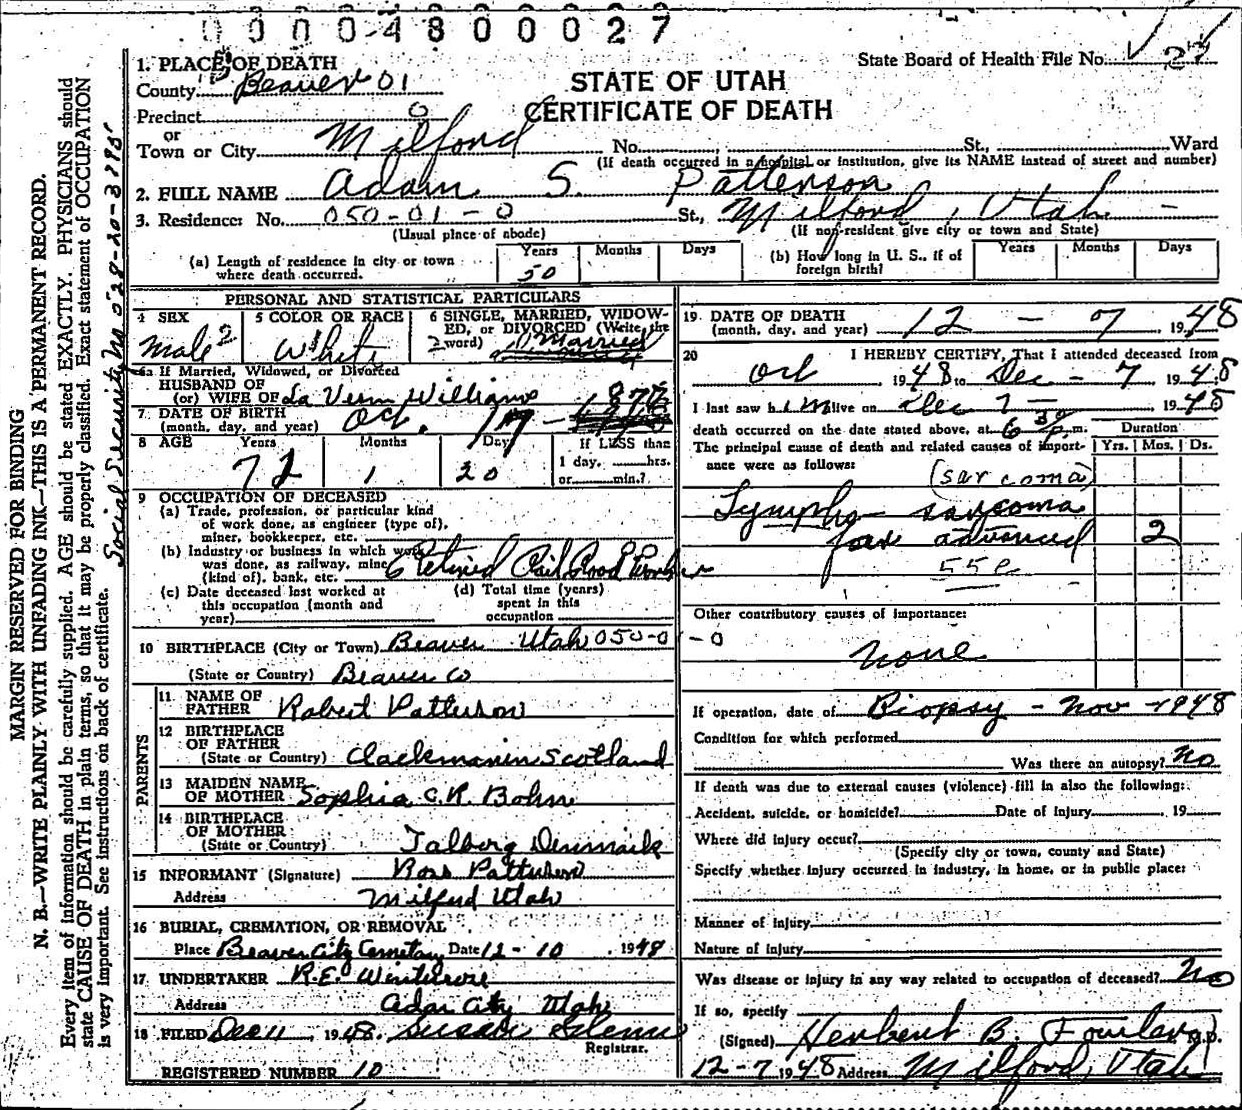 0 0 0 0 4 8 0 0 0 2 7
1. PLACE OF DEATH
County Beaver 01
State Board of Health File No. 27
STATE OF UTAH
CERTIFICATE OF DEATH
Precinct 0
or
Town or City Milford No. St., Ward
(If death occurred in a hospital or institution, give its NAME instead of street and number)
2. FULL NAME Adam S. Patterson
3. Residence: No. 050-01-0 St., Milford, Utah -
(Usual place of abode) (If non-resident give city or town and State)
(a) Length of residence in city or town where death occurred. Years 50 Months Days
(b) How long in U. S., if of foreign birth? Years Months Days
PERSONAL AND STATISTICAL PARTICULARS
4 SEX Male 2
5 COLOR OR RACE White
6 SINGLE, MARRIED, WIDOWED, or DIVORCED (Write the word) 2 Married
6a If Married, Widowed, or Divorced
HUSBAND OF
(or) WIFE OF La Vern Williams
7 DATE OF BIRTH
(month, day, and year) Oct. 17 - 1876
8 AGE Years 72 Months 1 Days 20 If LESS than
1 day, hrs.
or min.?
9 OCCUPATION OF DECEASED
(a) Trade, profession, or particular kind
of work done, as engineer (type of),
miner, bookkeeper, etc.
(b) Industry or business in which work
was done, as railway, mine
(kind of), bank, etc. Retired Rail Road Worker
(c) Date deceased last worked at
this occupation (month and
year)
(d) Total time (years)
spent in this
occupation
10 BIRTHPLACE (City or Town) Beaver Utah 050-01-0
(State or Country) Beaver Co
PARENTS
11 NAME OF
FATHER Robert Patterson
12 BIRTHPLACE
OF FATHER
(State or Country) Clackmanin Scotland
13 MAIDEN NAME
OF MOTHER Sophia C.K. Bohn
14 BIRTHPLACE
OF MOTHER
(State or Country) Talborg Denmark
15 INFORMANT (Signature) Ross Patterson
Address Milford Utah
16 BURIAL, CREMATION, OR REMOVAL
Place Beaver City Cemetary Date 12-10 , 1948
17 UNDERTAKER R.E. Winterose
Address Utah
18 FILED Dec 11 1948.
Registrar.
REGISTERED NUMBER 10
19 DATE OF DEATH
(month, day, and year) 12 - 7 , 1948
20 I HEREBY CERTIFY, That I attended deceased from
Oct 1948 to Dec - 7 1948
I last saw him alive on Dec 7 - 1948
death occurred on the date stated above, at 6 30 p.m.
Duration
The principal cause of death and related causes of importance were as follows: Yrs. Mos. Ds.
(sarcoma)
Lympho sarcoma
far advanced 2
55e
Other contributory causes of importance:
None
If operation, date of Biopsy - Nov - 1948
Condition for which performed
Was there an autopsy? No
If death was due to external causes (violence) fill in also the following:
Accident, suicide, or homicide? Date of injury , 19
Where did injury occur?
(Specify city or town, county and State)
Specify whether injury occurred in industry, in home, or in public place:
Manner of injury
Nature of injury
Was disease or injury in any way related to occupation of deceased? No
If so, specify
(Signed) Herbert B. Fowler M.D.
12-7 1948 Address Milford, Utah
MARGIN RESERVED FOR BINDING
N. B.—WRITE PLAINLY WITH UNFADING INK—THIS IS A PERMANENT RECORD.
Every item of information should be carefully supplied. AGE should be stated EXACTLY. PHYSICIANS should
state CAUSE OF DEATH in plain terms, so that it may be properly classified. Exact statement of OCCUPATION
is very important. See instructions on back of certificate.
Social Security No 528-20-3795